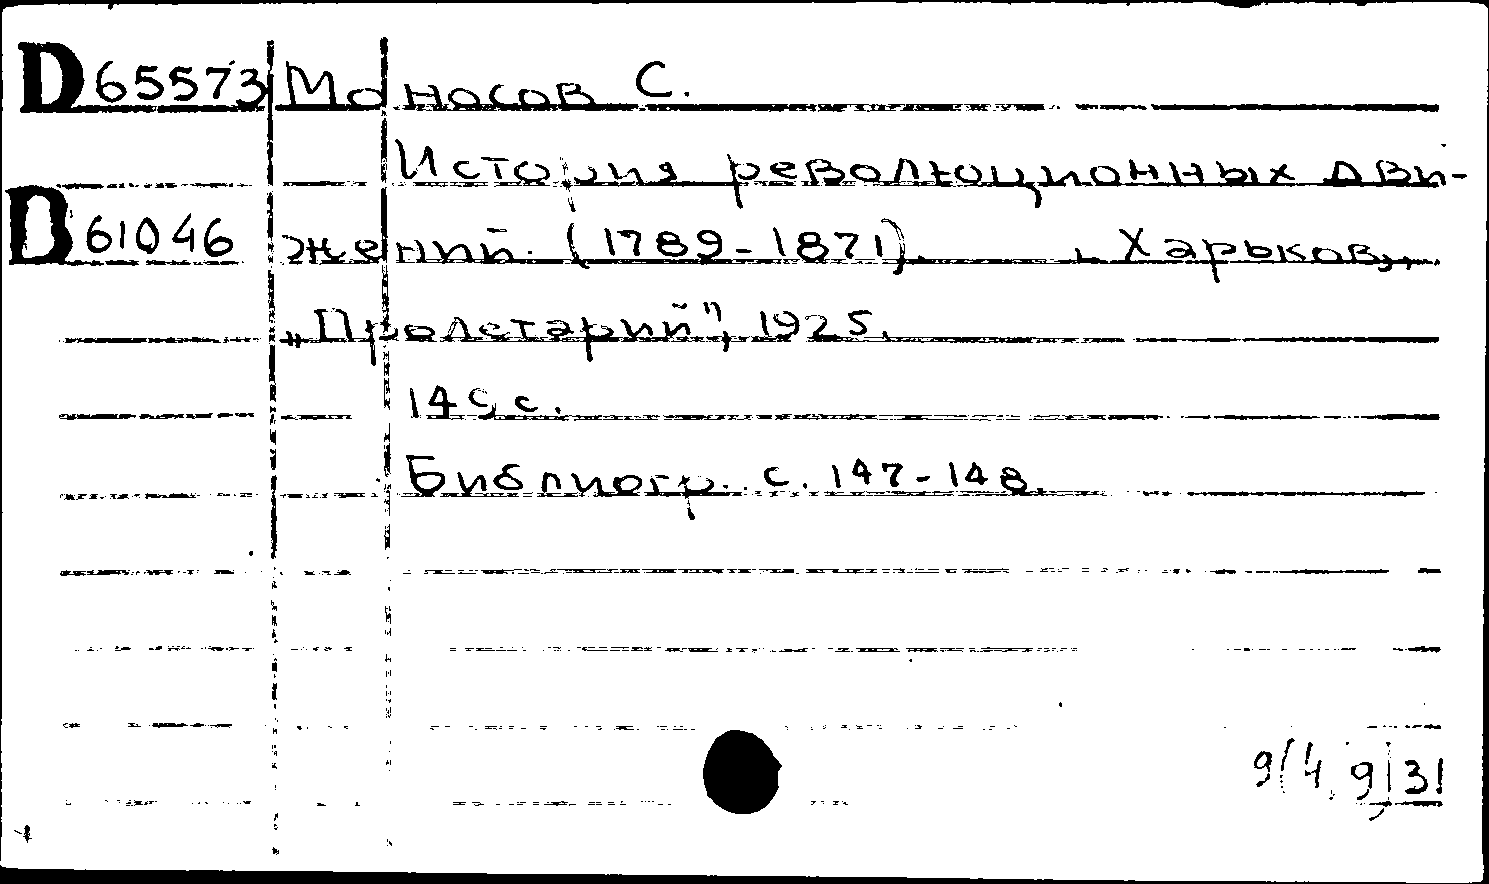 D 65573 Моносов С.
История революционных дви-
D 61046 жений. (1789-1871). Харьков,
„Пролетарий", 1925.
149 с.
Библиогр. с. 147-148.
9(4,9)31